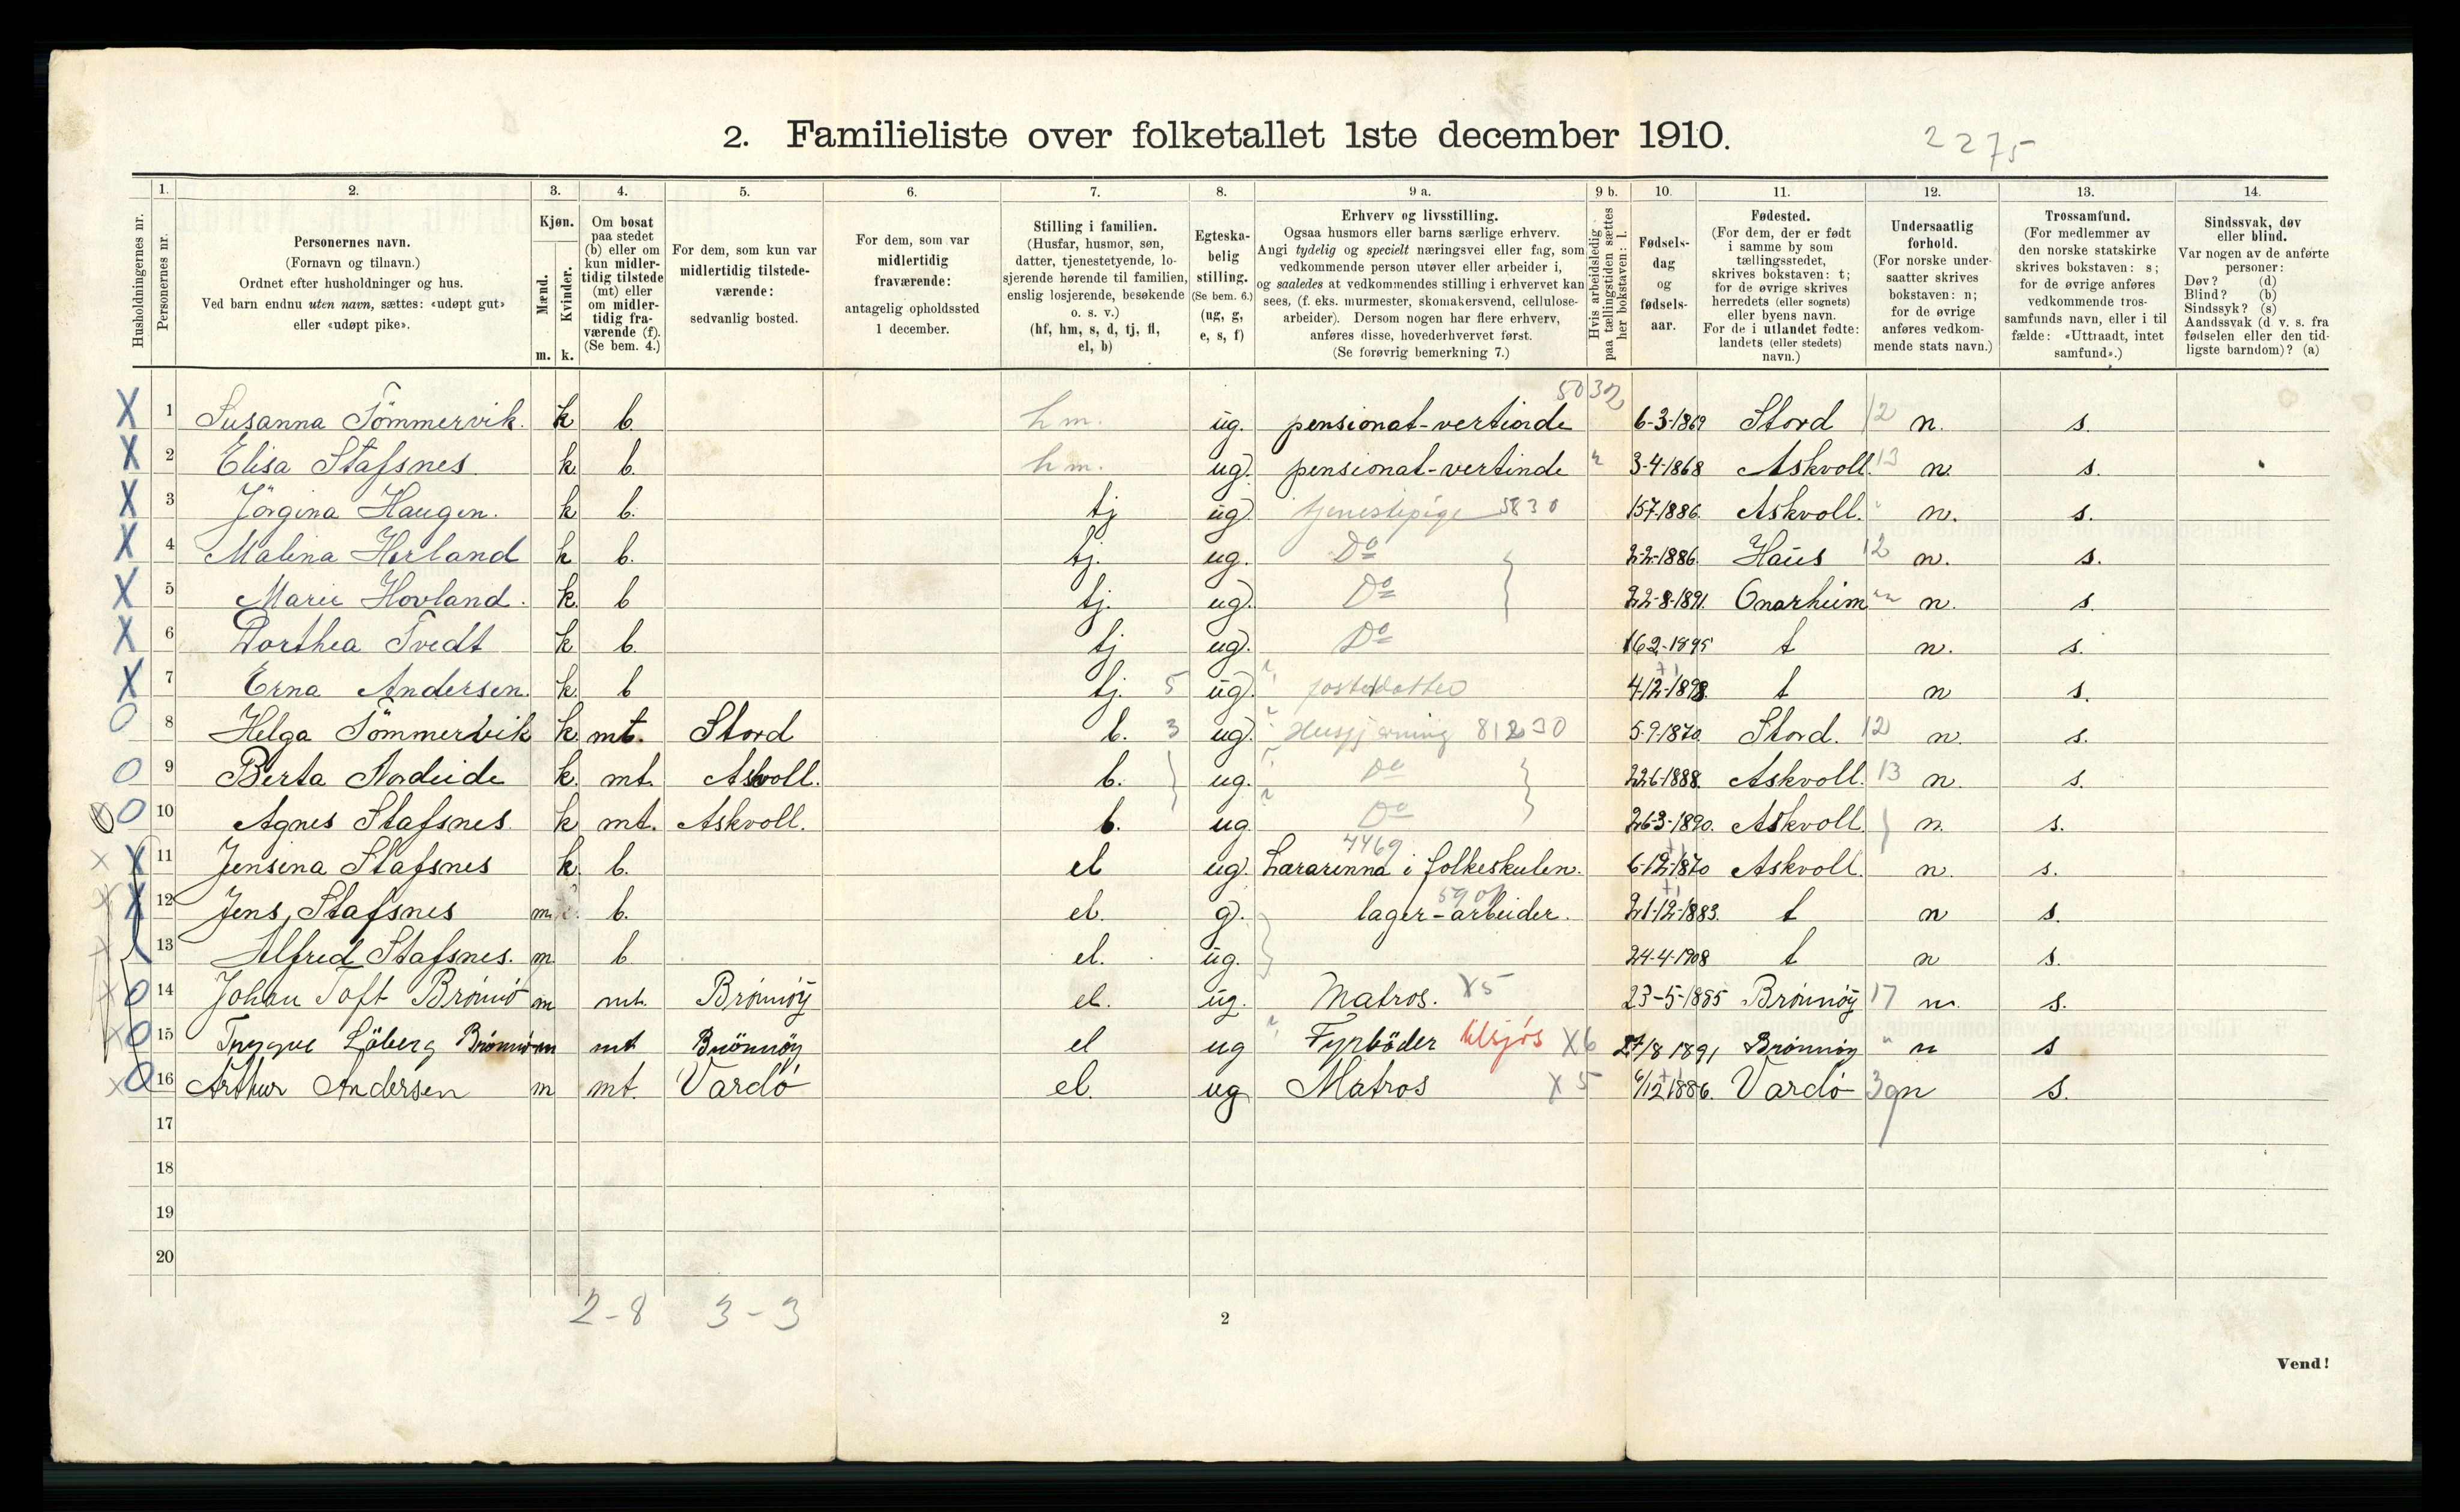 2. Familieliste over folketallet 1ste december 1910.
2275
Husholdningernes nr.
1. Personernes nr.
2. Personernes navn.
(Fornavn og tilnavn.)
Ordnet efter husholdninger og hus.
Ved barn endnu uten navn, sættes: «udøpt gut»
eller «udøpt pike».
3. Kjøn.
Mænd. m.
Kvinder. k.
4. Om bosat
paa stedet
(b) eller om
kun midler-
tidig tilstede
(mt) eller
om midler-
tidig fra-
værende (f).
(Se bem. 4.)
5. For dem, som kun var
midlertidig tilstede-
værende:
sedvanlig bosted.
6. For dem, som var
midlertidig
fraværende:
antagelig opholdssted
1 december.
7. Stilling i familien.
(Husfar, husmor, søn,
datter, tjenestetyende, lo-
sjerende hørende til familien,
enslig losjerende, besøkende
o. s. v.)
(hf, hm, s, d, tj, fl,
el, b)
8. Egteska-
belig
stilling.
(Se bem. 6.)
(ug, g,
e, s, f)
9 a. Erhverv og livsstilling.
Ogsaa husmors eller barns særlige erhverv.
Angi tydelig og specielt næringsvei eller fag, som
vedkommende person utøver eller arbeider i,
og saaledes at vedkommendes stilling i erhvervet kan
sees, (f. eks. murmester, skomakersvend, cellulose-
arbeider). Dersom nogen har flere erhverv,
anføres disse, hovederhvervet først.
(Se forøvrig bemerkning 7.)
9 b. Hvis arbeidsledig
paa tællingstiden sættes
her bokstaven: l.
10. Fødsels-
dag
og
fødsels-
aar.
11. Fødested.
(For dem, der er født
i samme by som
tællingsstedet,
skrives bokstaven: t;
for de øvrige skrives
herredets (eller sognets)
eller byens navn.
For de i utlandet fødte:
landets (eller stedets)
navn.)
12. Undersaatlig
forhold.
(For norske under-
saatter skrives
bokstaven: n;
for de øvrige
anføres vedkom-
mende stats navn.)
13. Trossamfund.
(For medlemmer av
den norske statskirke
skrives bokstaven: s;
for de øvrige anføres
vedkommende tros-
samfunds navn, eller i til
fælde: «Uttraadt, intet
samfund».)
14. Sindssvak, døv
eller blind.
Var nogen av de anførte
personer:
Døv? (d)
Blind? (b)
Sindssyk? (s)
Aandssvak (d. v. s. fra
fødselen eller den tid-
ligste barndom)? (a)
5032
X 1 Susanna Tömmervik. k b hm. ug. pensionat-vertinde 6-3-1869 Stord 12 n. s.
X 2 Elisa Stafsnes k. b. hm. ug. pensionat-vertinde " 3-4-1868 Askvoll. 13 n. s.
X 3 Jörgina Haugen. k b. tj ug. tjenestepige 5830 15-7-1886. Askvoll. " n. s.
X 4 Malina Herland k b. tj. ug. Do 2-2-1886. Haus 12 n. s.
X 5 Marie Hovland. k. b tj. ug. Do 22-8-1891. Onarheim " n. s.
X 6 Dorthea Tvedt k b. tj ug. Do 16-2-1895 t n. s.
X 7 Erna Andersen. k. b tj. 5 ug. fosterdatter 4-12-1898. t n s.
O 8 Helga Tömmervik k. mt. Stord b. 3 ug. Husgjerning 81230 5-9-1870 Stord. 12 n. s.
O 9 Berta Nordeide k. mt. Askvoll. b. ug. Do 22-6-1888. Askvoll. 13 n. s.
O 10 Agnes Stafsnes. k mt. Askvoll. b. ug Do 26-3-1890. Askvoll n. s.
4469
X 11 Jensina Stafsnes k. b. el ug. Lararinna i folkeskulen. 6-12-1870 Askvoll. n. s.
X 12 Jens Stafsnes m. b. el. g. lager-arbeider. 21-12-1883. t n s.
13 Alfred Stafsnes. m b el. ug. 24-4-1908 t n s.
O 14 Johan Toft Brönnö m mt. Brönnöy el. ug. Matros. X5 23-5-1885 Brönnöy 17 n. s.
O 15 Trygve Löberg Brönnö m mt Brönnöy el ug Fyrböder tilsjøs X6 27/8 1891 Brönnöy " n s
O 16 Arthur Andersen m mt. Vardö el. ug Matros X 5 6/12 1886. Vardö n s.
17
18
19
20
2-8 3-3
2
Vend!